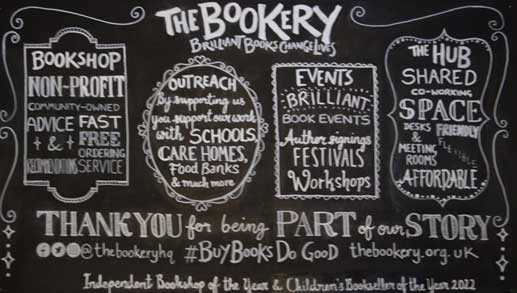 THE BOOKERY
BRILLIANT BOOKS CHANGE LIVES
BOOKSHOP
NON-PROFIT
COMMUNITY-OWNED
ADVICE & RECOMMENDATIONS
FAST & FREE ORDERING SERVICE
OUTREACH
By supporting us
you support our work
with SCHOOLS,
CARE HOMES,
Food Banks
& much more
EVENTS
BRILLIANT
BOOK EVENTS
Author signings
FESTIVALS
Workshops
THE HUB
SHARED
CO-WORKING
SPACE
DESKS & MEETING ROOMS
FRIENDLY
FLEXIBLE
AFFORDABLE
THANK YOU for being PART of our STORY
@thebookeryhq #BUYBOOKS DO GOOD thebookery.org.uk
Independent Bookshop of the Year & Children's Bookseller of the Year 2022